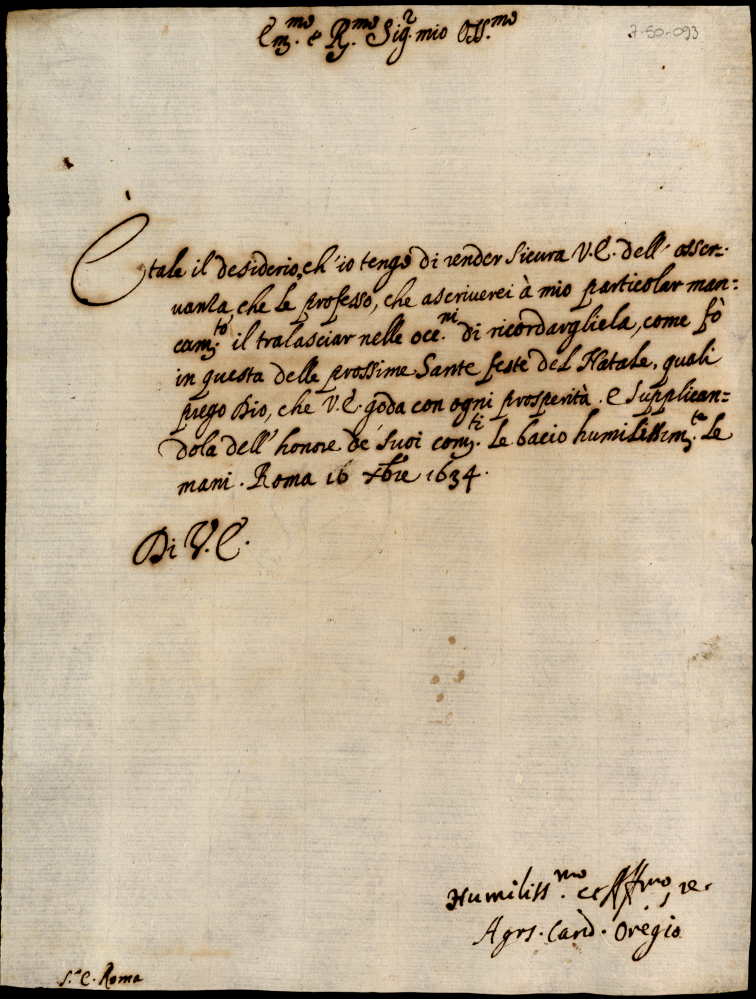 Em.mo e R.mo Sig.r mio Oss.mo
7-50-093
È tale il desiderio, ch'io tengo di render sicura V.E. dell' osser=
uanza, che le professo, che ascriuerei à mio particolar man=
cam.to il tralasciar nelle occ.ni di ricordargliela, come fò
in questa delle prossime Sante feste del Natale, quali
prego Dio, che V.E. goda con ogni prosperità. e supplican=
dola dell' honore de' suoi com.ti le bacio humilissim.te le
mani. Roma 16 xbre 1634.
Di V.E.
Humiliss.mo et Aff.mo se.
Card. Oregio
Roma